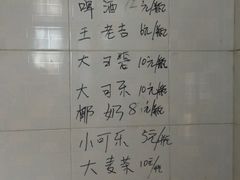 啤酒12元/瓶
王老吉 6元/瓶
大可 10元/瓶
大可乐 10元/瓶
椰奶 8元/瓶
小可乐 5元/瓶
大麦茶 10元/瓶